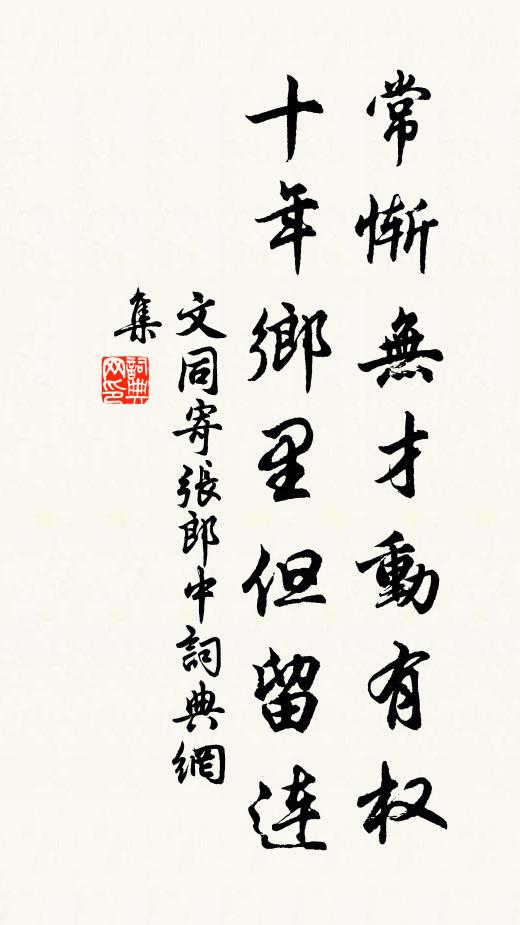 常慚無才動有权
十年鄉里但留連
文同寄張郎中詞典網
集
詞典
网印